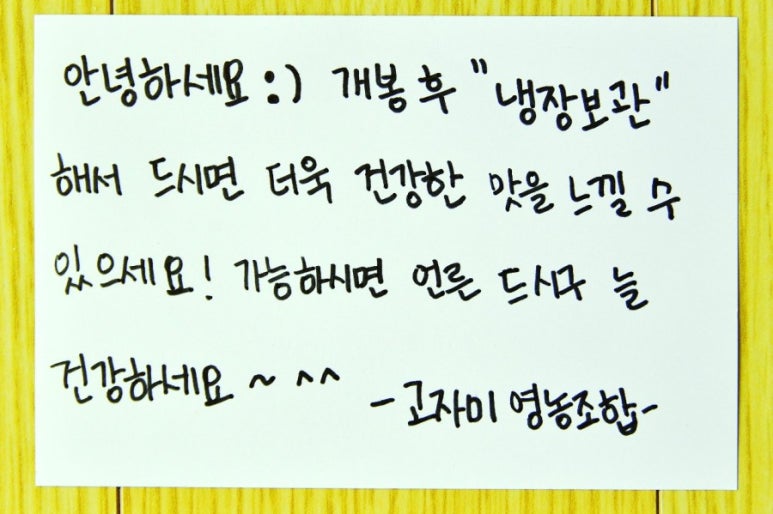 안녕하세요 :) 개봉 후 "냉장보관"
해서 드시면 더욱 건강한 맛을 느낄 수
있으세요! 가능하시면 언른 드시구 늘
건강하세요 ~ ^^
- 고자미 영농조합 -